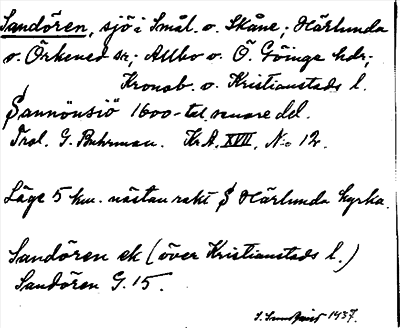 Sandören, sjö i Smål. o. Skåne; Härlunda
o. Örkened sn; Allbo o. Ö. Göinge hdr;
Kronob. o. Kristianstads l.
Sannönsiö 1600-tal. senare del.
Trol. G. Buhrman. Kr.A. XVII, N:o 12.
Läge 5 km. nästan rakt S Härlunda kyrka.
Sandören ek (över Kristianstads l.)
Sandören G. 15.
1937.